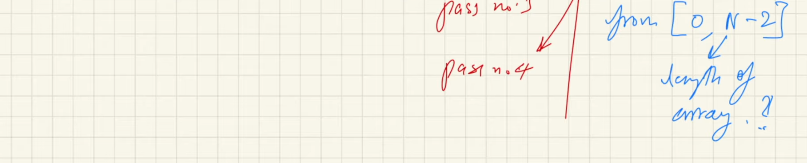 pass no.3
pass no.4
from [0, N-2]
length of
array.